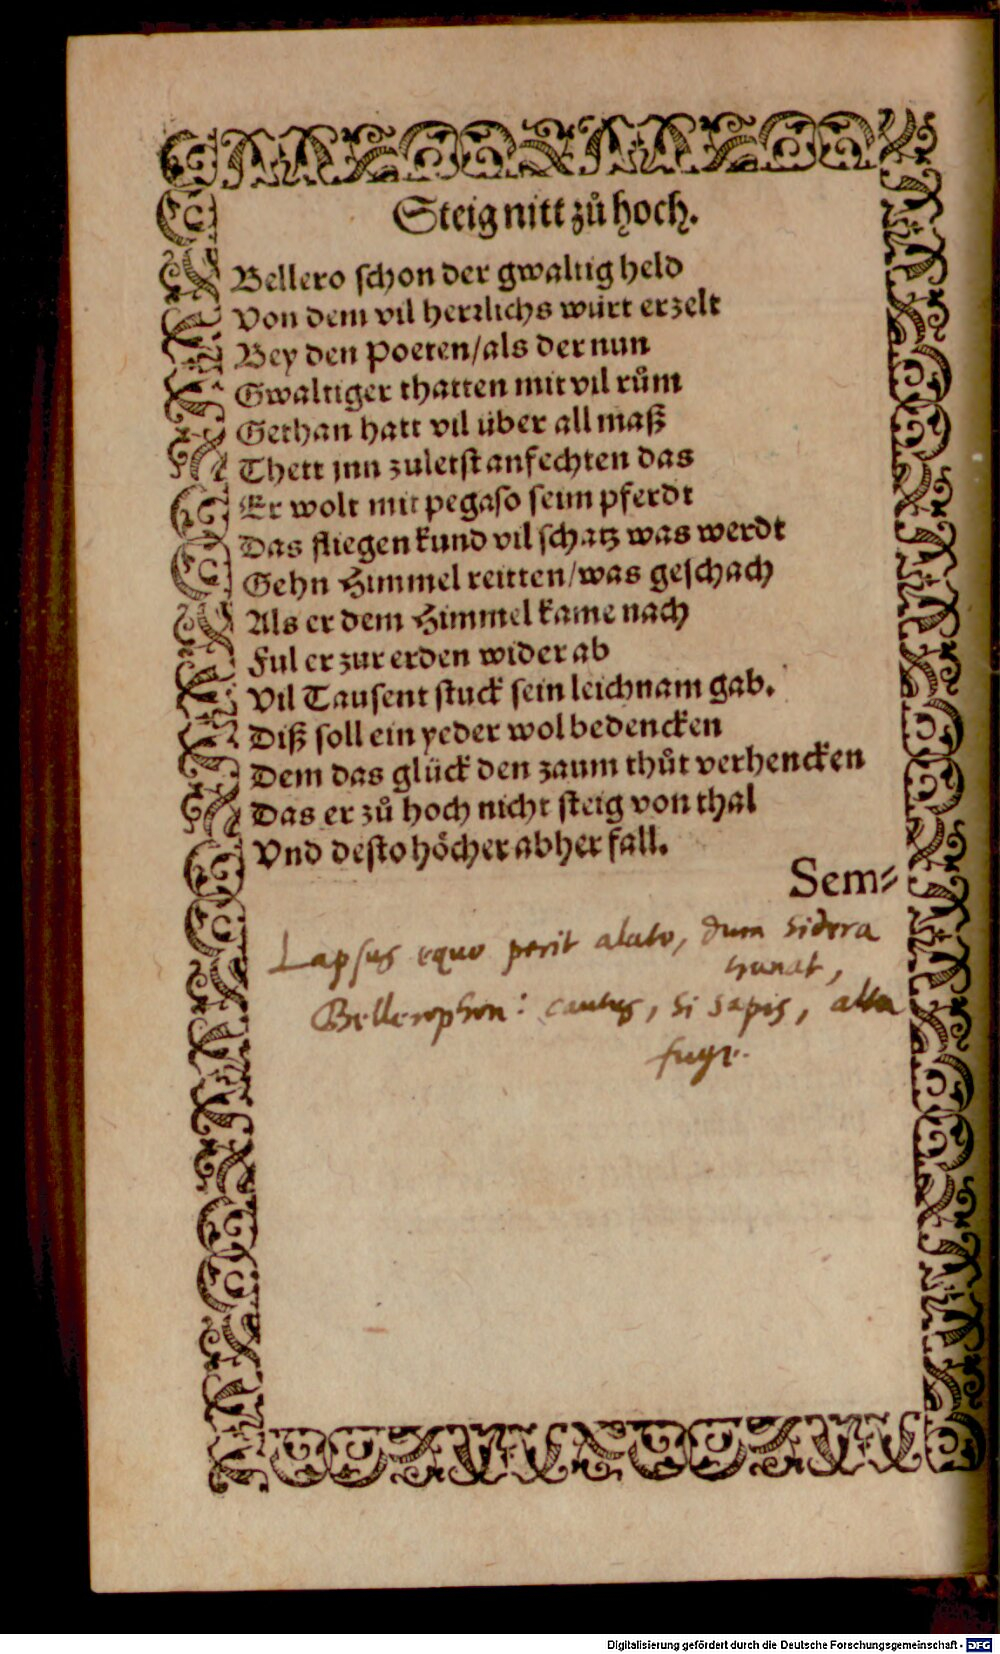 Steig nitt zů hoch.
Bellero schon der gwaltig held
Von dem vil herrlichs würt erzelt
Bey den Poeten/als der nun
Gwaltiger thatten mit vil rům
Gethan hatt vil über all maß
Thett jnn zuletst anfechten das
Er wolt mit pegaso seim pferdt
Das fliegen kund vil schatz was werdt
Gehn Himmel reitten/was geschach
Als er dem Himmel kame nach
Ful er zur erden wider ab
Vil Tausent stuck sein leichnam gab.
Diß soll ein yeder wol bedencken
Dem das glück den zaum thůt verhencken
Das er zů hoch nicht steig von thal
Vnd desto höcher abher fall.
Sem⸗
Lapsus equo perit alato, dum sidera
tranat,
Bellerophon: cautus, si sapis, alta
fuge.
Digitalisierung gefördert durch die Deutsche Forschungsgemeinschaft - DFG